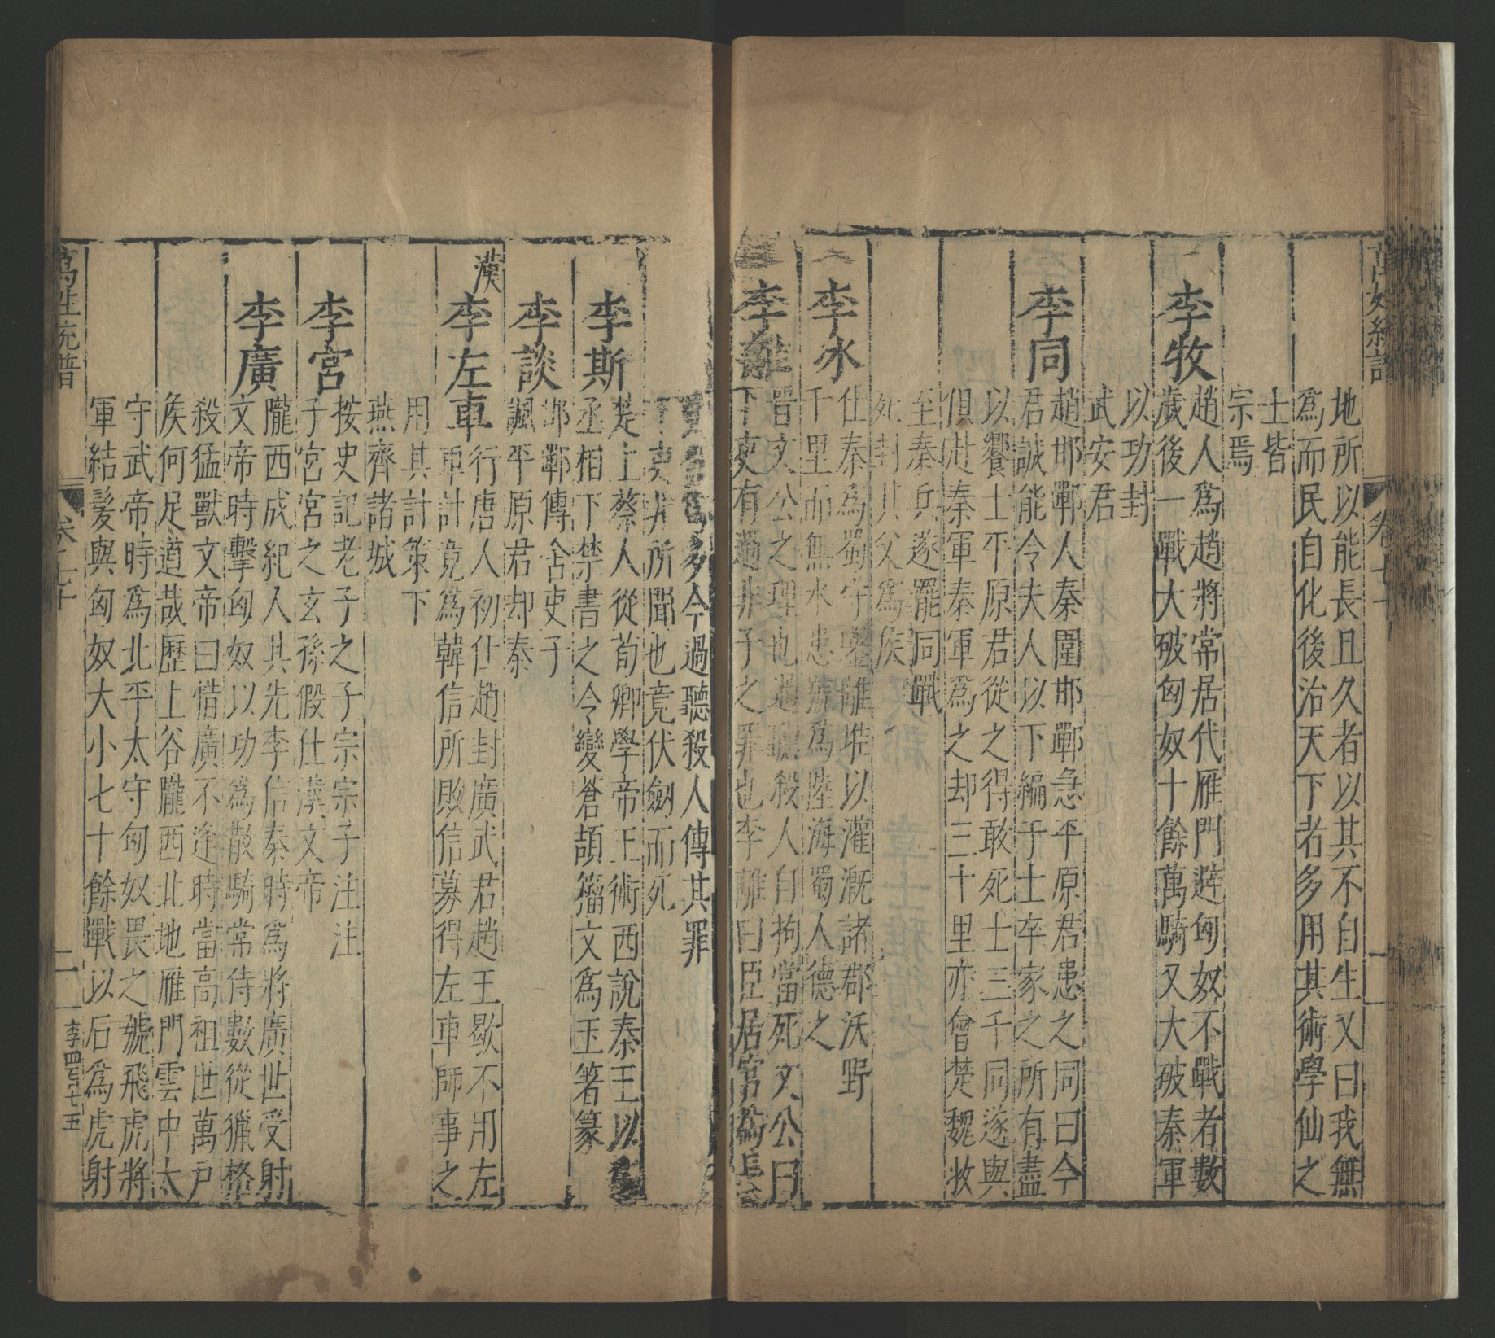 地所以能長且久者以其不自生又曰我無
為而民自化後治天下者多用其術學仙之
士皆
宗焉
李牧
趙人為趙將常居代雁門逰匈奴不戰者數
歲後一戰大破匈奴十餘萬騎又大破秦軍
以功封
武安君
李同
趙邯鄲人秦圍邯鄲急平原君患之同曰今
君誠能令夫人以下編于士卒家之所有盡
以饗士平原君從之得敢死士三千同遂與
俱赴秦軍秦軍為之却三十里亦會楚魏救
至秦兵遂罷同戰
死封其父為侯
李氷
仕秦為蜀守鑿離堆以灌溉諸郡沃野
千里而無水患號為陸海蜀人德之
李離
晉文公之理也過聽殺人自拘當死文公曰
下吏有過非子之罪也李離曰臣居官為長
多今過聽殺人傳其罪
下吏非所聞也竟伏劍而死
李斯
楚上蔡人從荀卿學帝王術西說秦王以為
丞相下禁書之令變蒼頡籀文為玉筯篆
李談
邯鄲傳舍吏子
諷平原君却秦
漢
李左車
行唐人初仕趙封廣武君趙王歇不用左
車計竟為韓信所敗信募得左車師事之
用其計策下
燕齊諸城
李宮
按史記老子之子宗宗子注注
子宮宮之玄孫假仕漢文帝
李廣
隴西成紀人其先李信秦時為將廣世受射
文帝時擊匈奴以功為散騎常侍數從獵格
殺猛獸文帝曰惜廣不逢時當高祖世萬戶
侯何足道哉歷上谷隴西北地雁門雲中太
守武帝時為北平太守匈奴畏之號飛虎將
軍結髮與匈奴大小七十餘戰以石為虎射
萬姓統譜
二
李四百七五